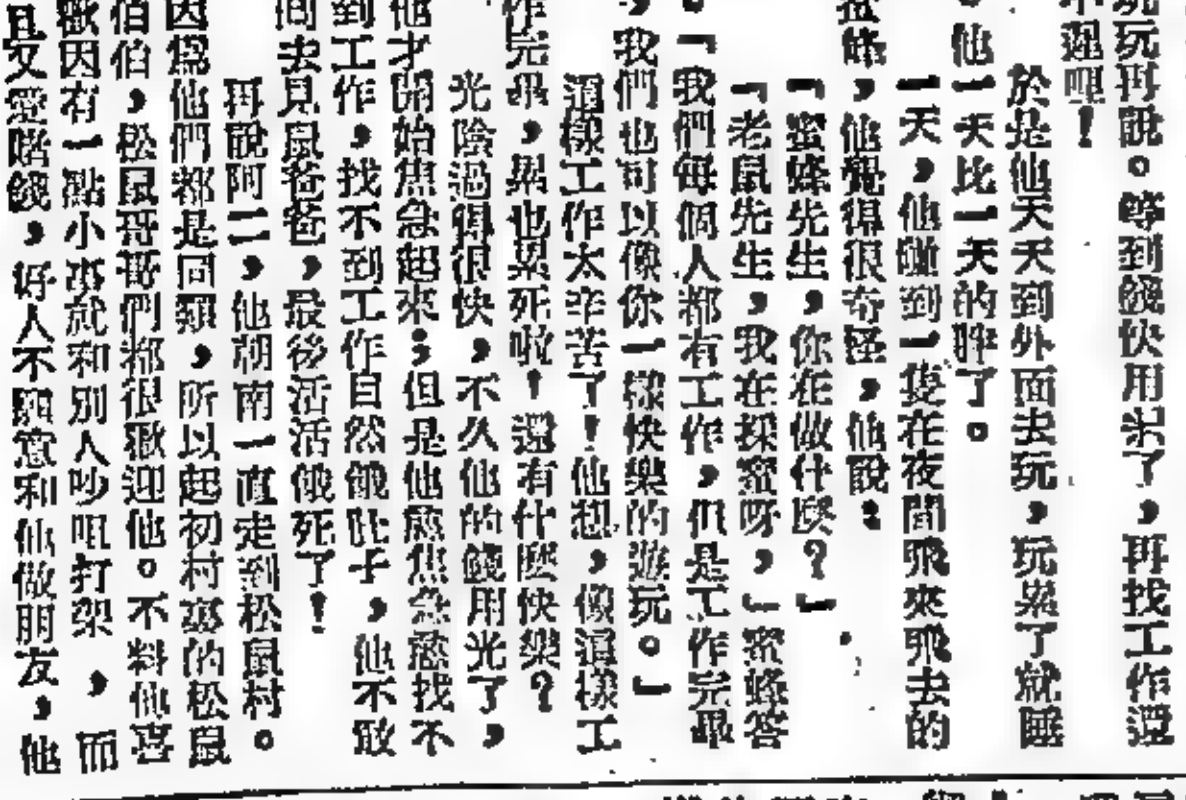 玩玩再說。等到錢快用光了，再找工作還
不遲哩！
於是他天天到外面去玩，玩累了就睡
。他一天比一天的胖了。
一天，他碰到一隻在夜間飛來飛去的
蜜蜂，他覺得很奇怪，他說：
「蜜蜂先生，你在做什麼？」
「老鼠先生，我在採蜜呀，」蜜蜂答
。「我們每個人都有工作，但是工作完畢
，我們也可以像你一樣快樂的遊玩。」
這樣工作太辛苦了！他想，像這樣工
作完畢，累也累死啦！還有什麼快樂？
光陰過得很快，不久他的錢用光了，
他才開始焦急起來；但是他愈焦急愈找不
到工作，找不到工作自然餓肚子，他不敢
回去見鼠爸爸，最後活活餓死了！
再說阿二，他朝南一直走到松鼠村。
因為他們都是同類，所以起初村裏的松鼠
伯伯，松鼠哥哥們都很歡迎他。不料他喜
歡因有一點小事就和別人吵咀打架，而
且又愛賭錢，好人不願意和他做朋友，他